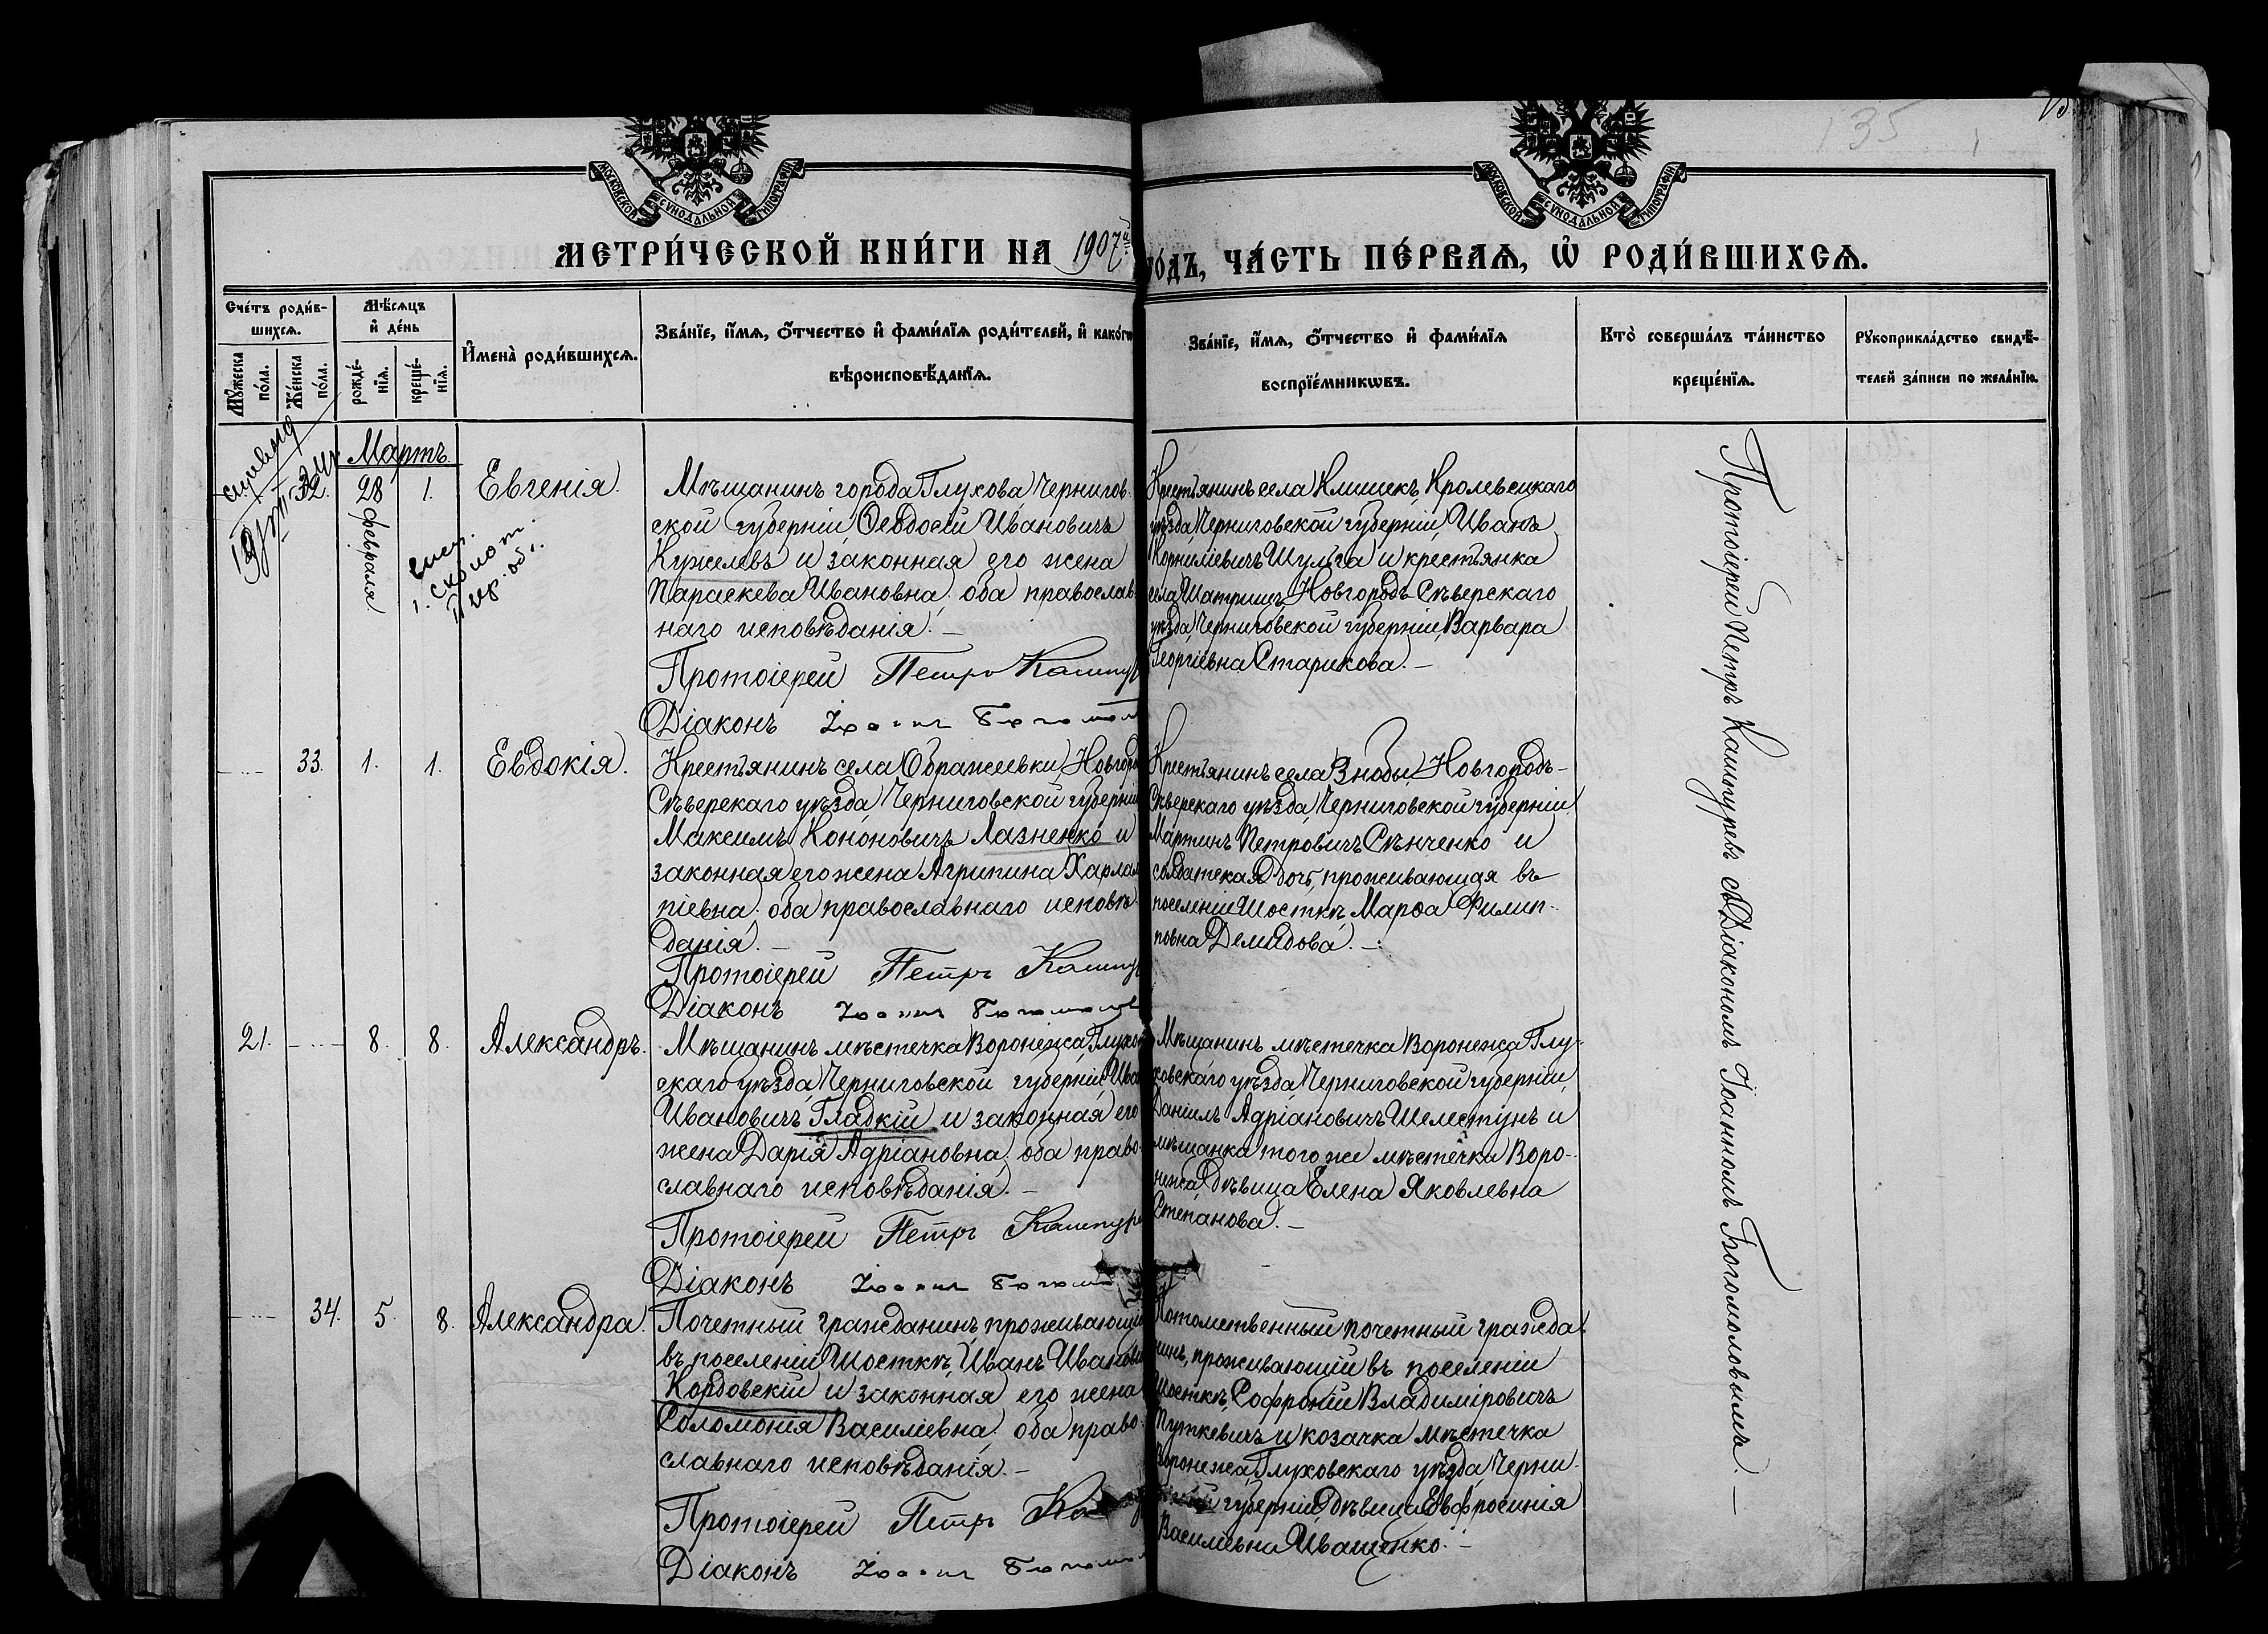 135
МОСКОВСКОЙ СѴНОДАЛЬНОЙ ТИПОГРАФІИ
МОСКОВСКОЙ СѴНОДАЛЬНОЙ ТИПОГРАФІИ
МЕТРИ́ЧЕСКОЙ КНИ́ГИ НА 1907й
го́дъ, ЧА́СТЬ ПЕ́РВАѦ, Ѡ҆ РОДИ́ВШИХСѦ.
Сче́тъ роди́в-
шихсѧ.
Мꙋ́жеска по́ла.
Же́нска по́ла.
Мѣ́сѧцъ
и҆ де́нь
рожде́-
нїѧ.
креще́-
нїѧ.
И҆мена̀ роди́вшихсѧ.
Зва́нїе, и҆́мѧ, ѻ҆́тчество и҆ фами́лїѧ роди́телей, и҆ како́гѡ
вѣроисповѣ́данїѧ.
Зва́нїе, и҆́мѧ, ѻ҆́тчество и҆ фами́лїѧ
воспрїе́мникѡвъ.
Кто̀ соверша́лъ та́инство
креще́нїѧ.
Рꙋкоприкла́дство свидѣ́-
телей за́писи по жела́нїю.
Мартъ.
32.
28 февраля
1.
Евгенія.
Мѣщанинъ города Глухова Чернигов-
ской губерніи Ѳеодосій Ивановичъ
Кужелевъ и законная его жена
Параскева Ивановна; оба православ-
наго исповѣданія. —
Протоіерей Петръ
Діаконъ
Крестьянинъ села Клишекъ, Кролевецкаго
уѣзда Черниговской губерніи, Иванъ
Корниліевичъ Шульга и крестьянка
села Шатрищъ Новгородъ-Сѣверскаго
уѣзда Черниговской губерніи, Варвара
Георгіевна Старикова. —
33.
1.
1.
Евдокія.
Крестьянинъ села Ображеевки, Новгородъ
Сѣверскаго уѣзда, Черниговской губерніи
Максимъ Кононовичъ Лазненко и
законная его жена Агрипина Харлам-
піевна; оба православнаго исповѣ-
данія. —
Протоіерей Петръ
Діаконъ
Крестьянинъ села Знобы, Новгородъ-
Сѣверскаго уѣзда, Черниговской губерніи
Мартинъ Петровичъ Сѣнченко и
солдатская дочь, проживающая въ
поселеніи Шосткѣ, Марѳа Филип-
повна Демидова. —
21.
8.
8.
Александръ.
Мѣщанинъ мѣстечка Воронежа, Глухов-
скаго уѣзда Черниговской губерніи, Иванъ
Ивановичъ Гладкій и законная его
жена Дарія Адріановна; оба право-
славнаго исповѣданія. —
Протоіерей Петръ Кашпурев
Діаконъ
Мѣщанинъ мѣстечка Воронежа Глу-
ховскаго уѣзда Черниговской губерніи,
Даніилъ Адріановичъ Шелестунъ и
мѣщанка того же мѣстечка Воро-
нежа, дѣвица Елена Яковлевна
Степанова. —
34.
5.
8.
Александра.
Почетный гражданинъ, проживающій
въ поселеніи Шосткѣ, Иванъ Ивановичъ
Кордовскій и законная его жена
Соломонія Василіевна; оба право-
славнаго исповѣданія. —
Протоіерей Петръ
Діаконъ
Потомственный почетный гражда-
нинъ, проживающій въ поселеніи
Шосткѣ, Софроній Владиміровичъ
Путкевичъ и козачка мѣстечка
Воронежа, Глуховскаго уѣзда, Черни-
губерніи, дѣвица Евфросинія
Василіевна Иващенко. —
Протоіерей Петръ Кашпуревъ съ Діакономъ Іоанномъ Богомоловымъ. —